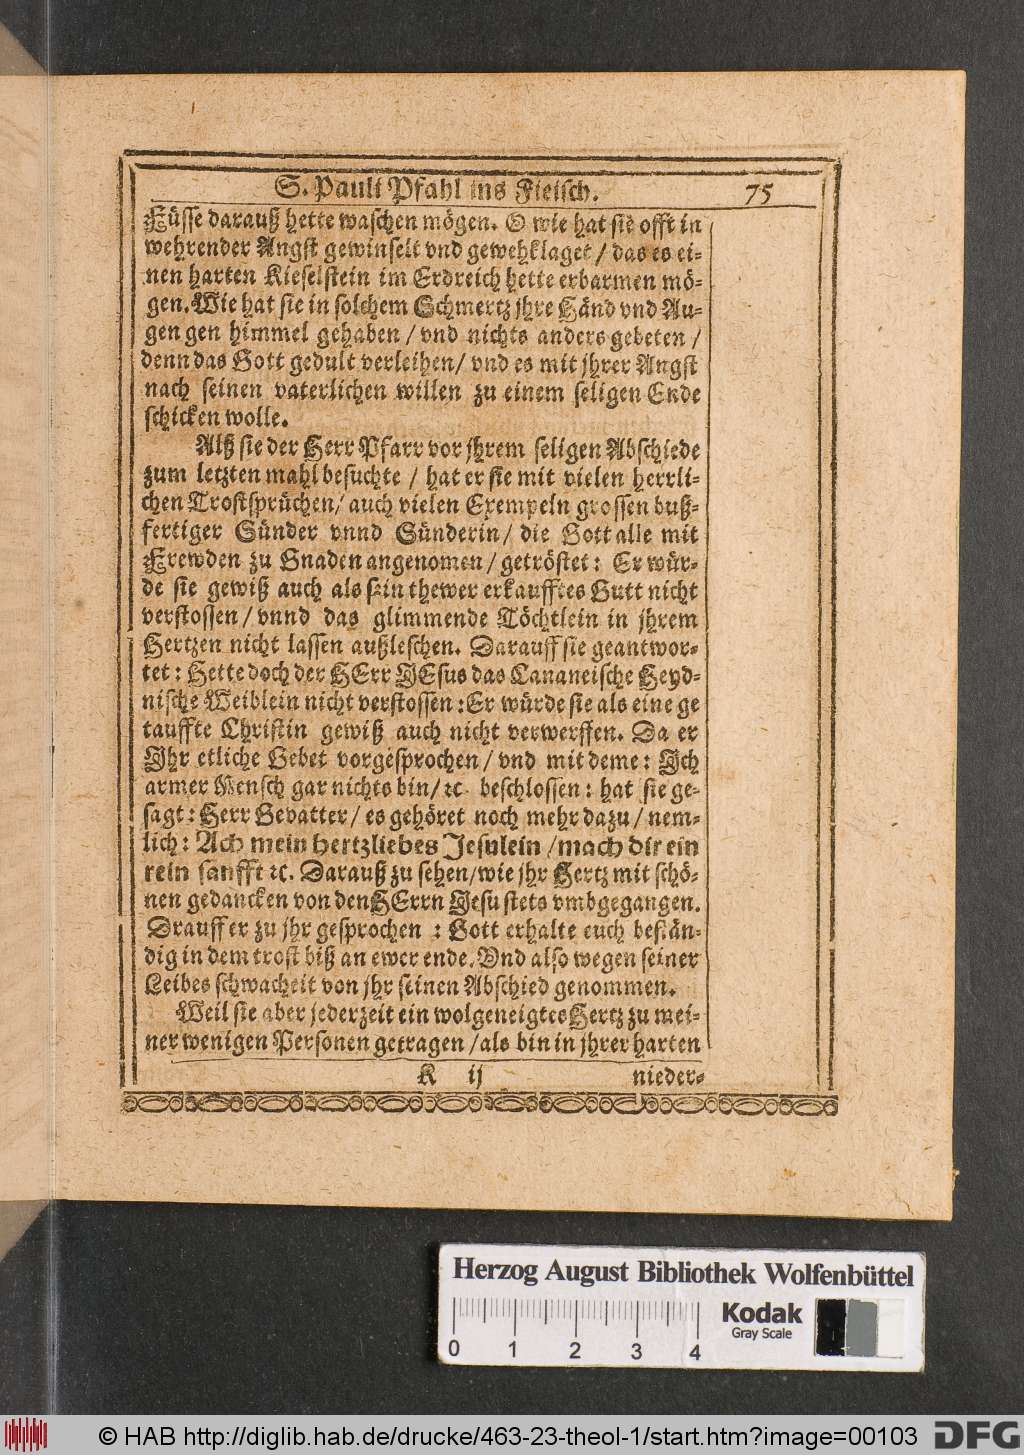 S. Pauli Pfahl ins Fleisch. 75
Füsse darauß hette waschen mögen. O wie hat sie offt in
wehrender Angst gewinselt vnd gewehklaget / das es ei-
nen harten Kieselstein im Erdreich hette erbarmen mö-
gen. Wie hat sie in solchem Schmertz jhre Händ vnd Au-
gen gen himmel gehaben / vnd nichts anders gebeten /
denn das Gott gedult verleihen / vnd es mit jhrer Angst
nach seinen vaterlichen willen zu einem seligen Ende
schicken wolle.
Alß sie der Herr Pfarr vor jhrem seligen Abschiede
zum letzten mahl besuchte / hat er sie mit vielen herrli-
chen Trostsprüchen / auch vielen Exempeln grossen buß-
fertiger Sünder vnnd Sünderin / die Gott alle mit
Frewden zu Gnaden angenomen / getröstet: Er wür-
de sie gewiß auch als sein thewer erkaufftes Gutt nicht
verstossen / vnnd das glimmende Töchtlein in jhrem
Hertzen nicht lassen außleschen. Darauff sie geantwor-
tet: Hette doch der HErr JEsus das Cananeische Heyd-
nische Weiblein nicht verstossen: Er würde sie als eine ge
tauffte Christin gewiß auch nicht verwerffen. Da er
Jhr etliche Gebet vorgesprochen / vnd mit deme: Jch
armer Mensch gar nichts bin / ꝛc. beschlossen: hat sie ge-
sagt: Herr Gevatter / es gehöret noch mehr dazu / nem-
lich: Ach mein hertzliebes Jesulein / mach dir ein
rein sanfft ꝛc. Darauß zu sehen / wie jhr Hertz mit schö-
nen gedancken von den HErrn Jesu stets vmbgegangen.
Drauff er zu jhr gesprochen : Gott erhalte euch bestän-
dig in dem trost biß an ewer ende. Vnd also wegen seiner
Leibes schwacheit von jhr seinen Abschied genommen.
Weil sie aber jederzeit ein wolgeneigtes Hertz zu mei-
ner wenigen Personen getragen / als bin in jhrer harten
K ij nieder-
Herzog August Bibliothek Wolfenbüttel
Kodak
Gray Scale
0 1 2 3 4
© HAB http://diglib.hab.de/drucke/463-23-theol-1/start.htm?image=00103
DFG